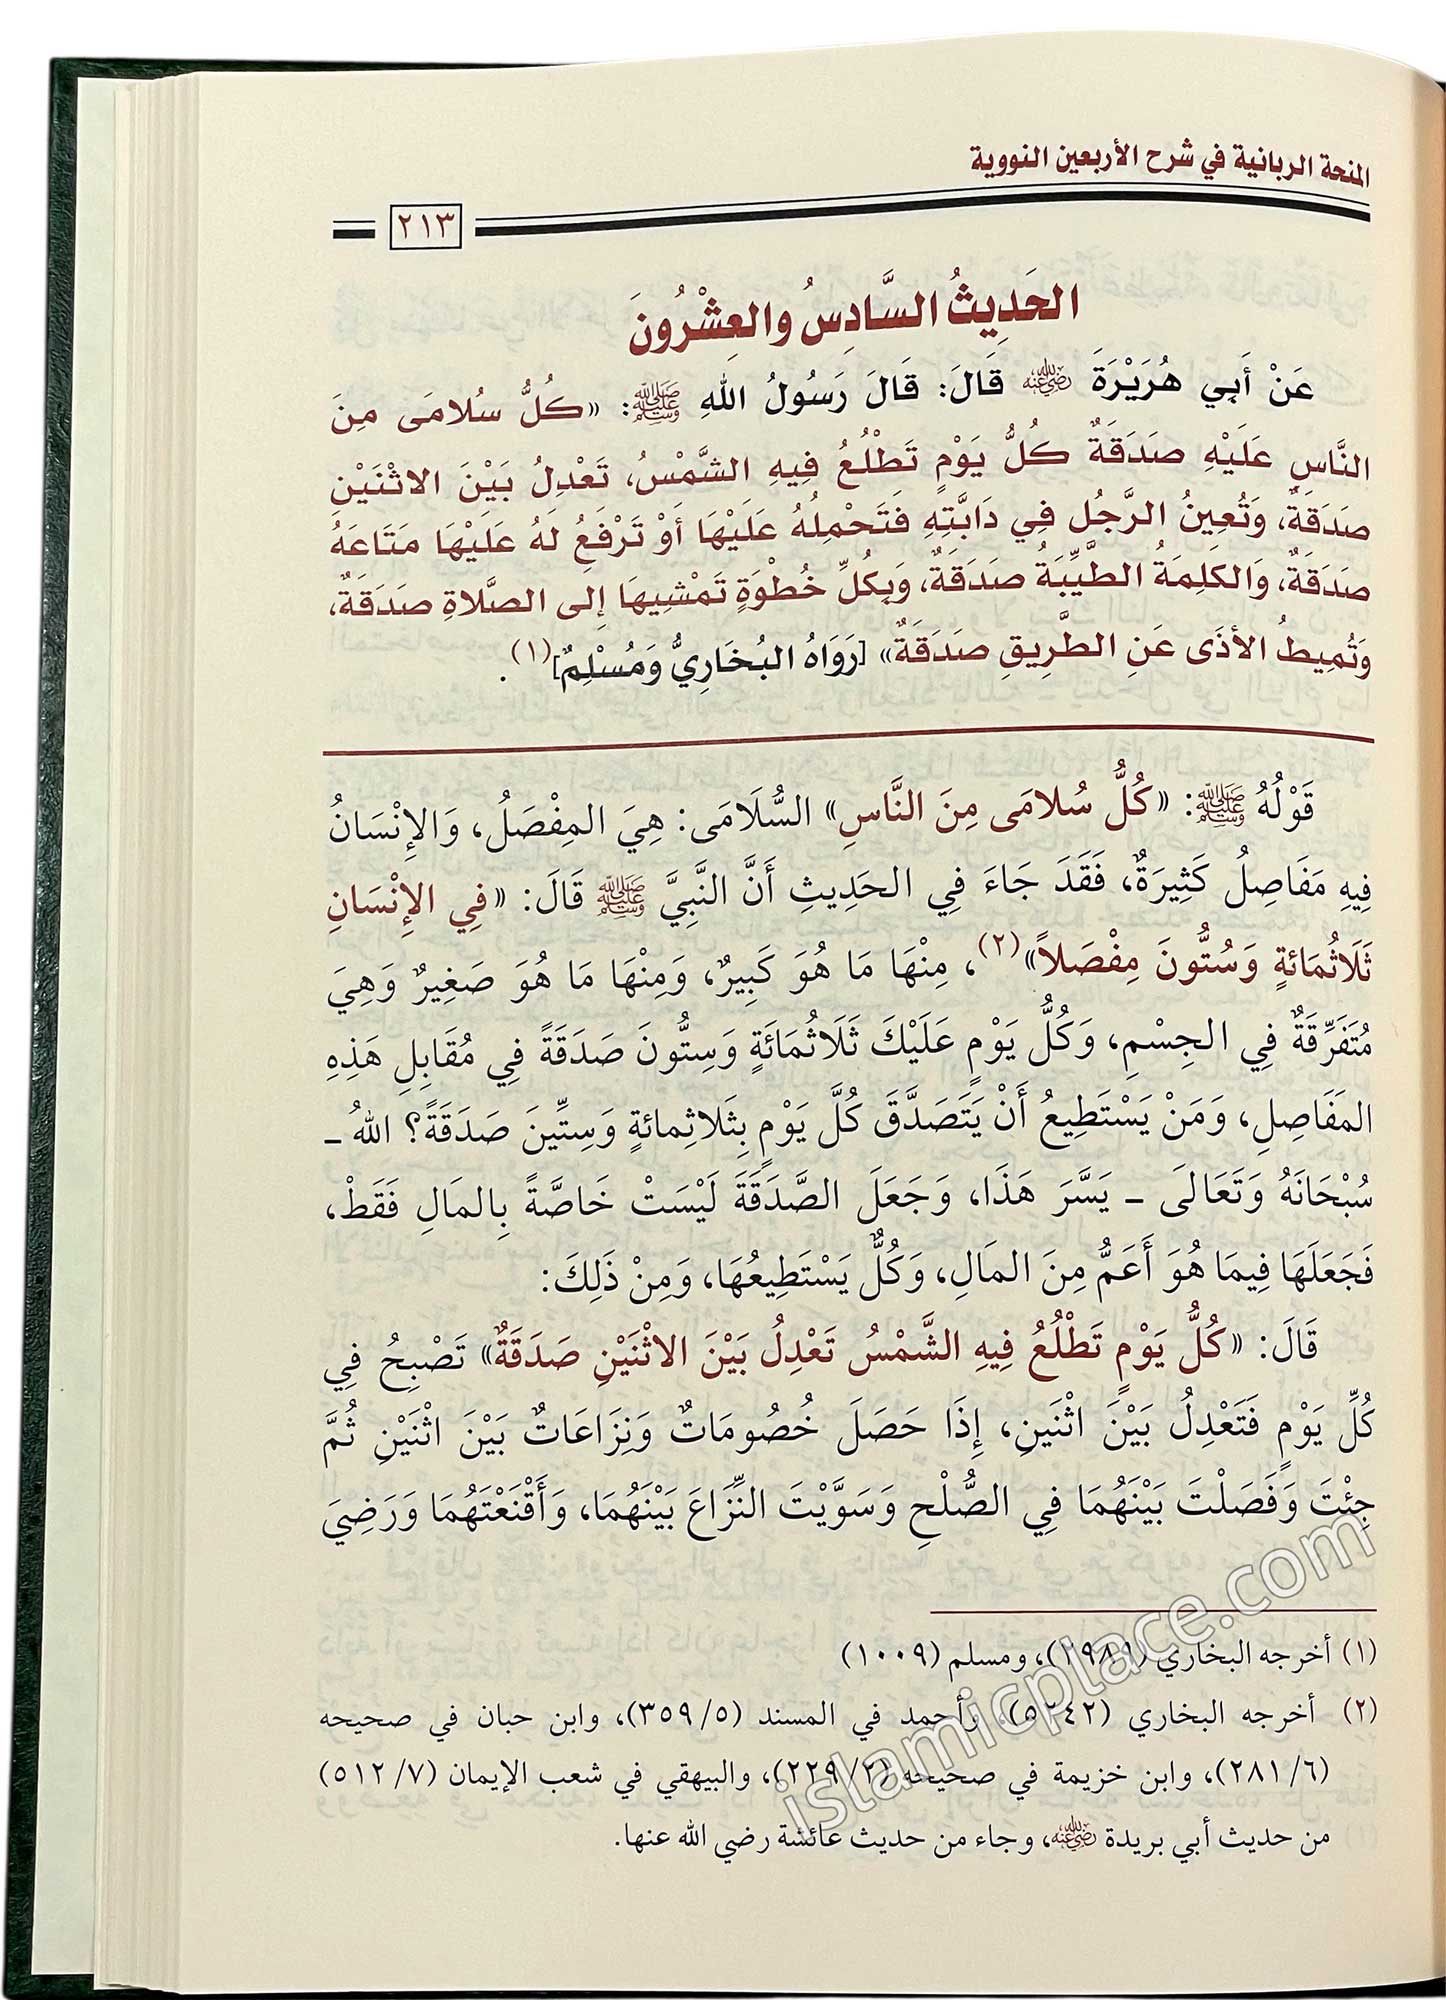 المنحة الربانية في شرح الأربعين النووية
٢١٣
الحَدِيثُ السَّادِسُ والعِشْرُونَ
عَنْ أَبِي هُرَيْرَةَ رضي الله عنه قَالَ: قَالَ رَسُولُ اللهِ ﷺ: «كُلُّ سُلامَى مِنَ
النَّاسِ عَلَيْهِ صَدَقَةٌ كُلُّ يَوْمٍ تَطْلُعُ فِيهِ الشَّمْسُ، تَعْدِلُ بَيْنَ الاثْنَيْنِ
صَدَقَةٌ، وَتُعِينُ الرَّجُل فِي دَابَّتِهِ فَتَحْمِلُهُ عَلَيْهَا أَوْ تَرْفَعُ لَهُ عَلَيْهَا مَتَاعَهُ
صَدَقَةٌ، وَالكَلِمَةُ الطَّيِّبَةُ صَدَقَةٌ، وَبِكُلِّ خُطْوَةٍ تَمْشِيهَا إِلى الصَّلاةِ صَدَقَةٌ،
وَتُمِيطُ الأذَى عَنِ الطَّرِيقِ صَدَقَةٌ» [رَوَاهُ البُخَارِيُّ وَمُسْلِمٌ](١).
قَوْلُهُ ﷺ: «كُلُّ سُلامَى مِنَ النَّاسِ» السُّلَامَى: هِيَ المِفْصَلُ، وَالإِنْسَانُ
فِيهِ مَفَاصِلُ كَثِيرَةٌ، فَقَدَ جَاءَ فِي الحَدِيثِ أَنَّ النَّبِيَّ ﷺ قَالَ: «فِي الإِنْسَانِ
ثَلَاثُمَائةٍ وَسُتُّونَ مِفْصَلاً»(٢)، مِنْهَا مَا هُوَ كَبِيرٌ، وَمِنْهَا مَا هُوَ صَغِيرٌ وَهِيَ
مُتَفَرِّقَةٌ فِي الجِسْمِ، وَكُلُّ يَوْمٍ عَلَيْكَ ثَلَاثُمَائَةٍ وَسِتُّونَ صَدَقَةً فِي مُقَابِلِ هَذِهِ
المَفَاصِلِ، وَمَنْ يَسْتَطِيعُ أَنْ يَتَصَدَّقَ كُلَّ يَوْمٍ بِثَلاثِمائةٍ وَسِتِّينَ صَدَقَةً؟ اللهُ -
سُبْحَانَهُ وَتَعَالَى - يَسَّرَ هَذَا، وَجَعَلَ الصَّدَقَةَ لَيْسَتْ خَاصَّةً بِالمَالِ فَقَطْ،
فَجَعَلَهَا فِيمَا هُوَ أَعَمُّ مِنَ المَالِ، وَكُلٌّ يَسْتَطِيعُهَا، وَمِنْ ذَلِكَ:
قَالَ: «كُلُّ يَوْمٍ تَطْلُعُ فِيهِ الشَّمْسُ تَعْدِلُ بَيْنَ الاثْنَيْنِ صَدَقَةٌ» تَصْبِحُ فِي
كُلِّ يَوْمٍ فَتَعْدِلُ بَيْنَ اثْنَينِ، إِذَا حَصَلَ خُصُومَاتٌ وَنِزَاعَاتٌ بَيْنَ اثْنَيْنِ ثُمَّ
جِئْتَ وَفَصَلْتَ بَيْنَهُمَا فِي الصُّلْحِ وَسَوَّيْتَ النِّزَاعَ بَيْنَهُمَا، وَأَقْنَعْتَهُمَا وَرَضِيَ
(١) أخرجه البخاري (٢٩٨٩)، ومسلم (١٠٠٩)
(٢) أخرجه البخاري (٥٢٤٢)، وأحمد في المسند (٣٥٩/٥)، وابن حبان في صحيحه
(٢٨١/٦)، وابن خزيمة في صحيحه (٢٢٩/٢)، والبيهقي في شعب الإيمان (٥١٢/٧)
من حديث أبي بريدة رضي الله عنه، وجاء من حديث عائشة رضي الله عنها.
islamicplace.com